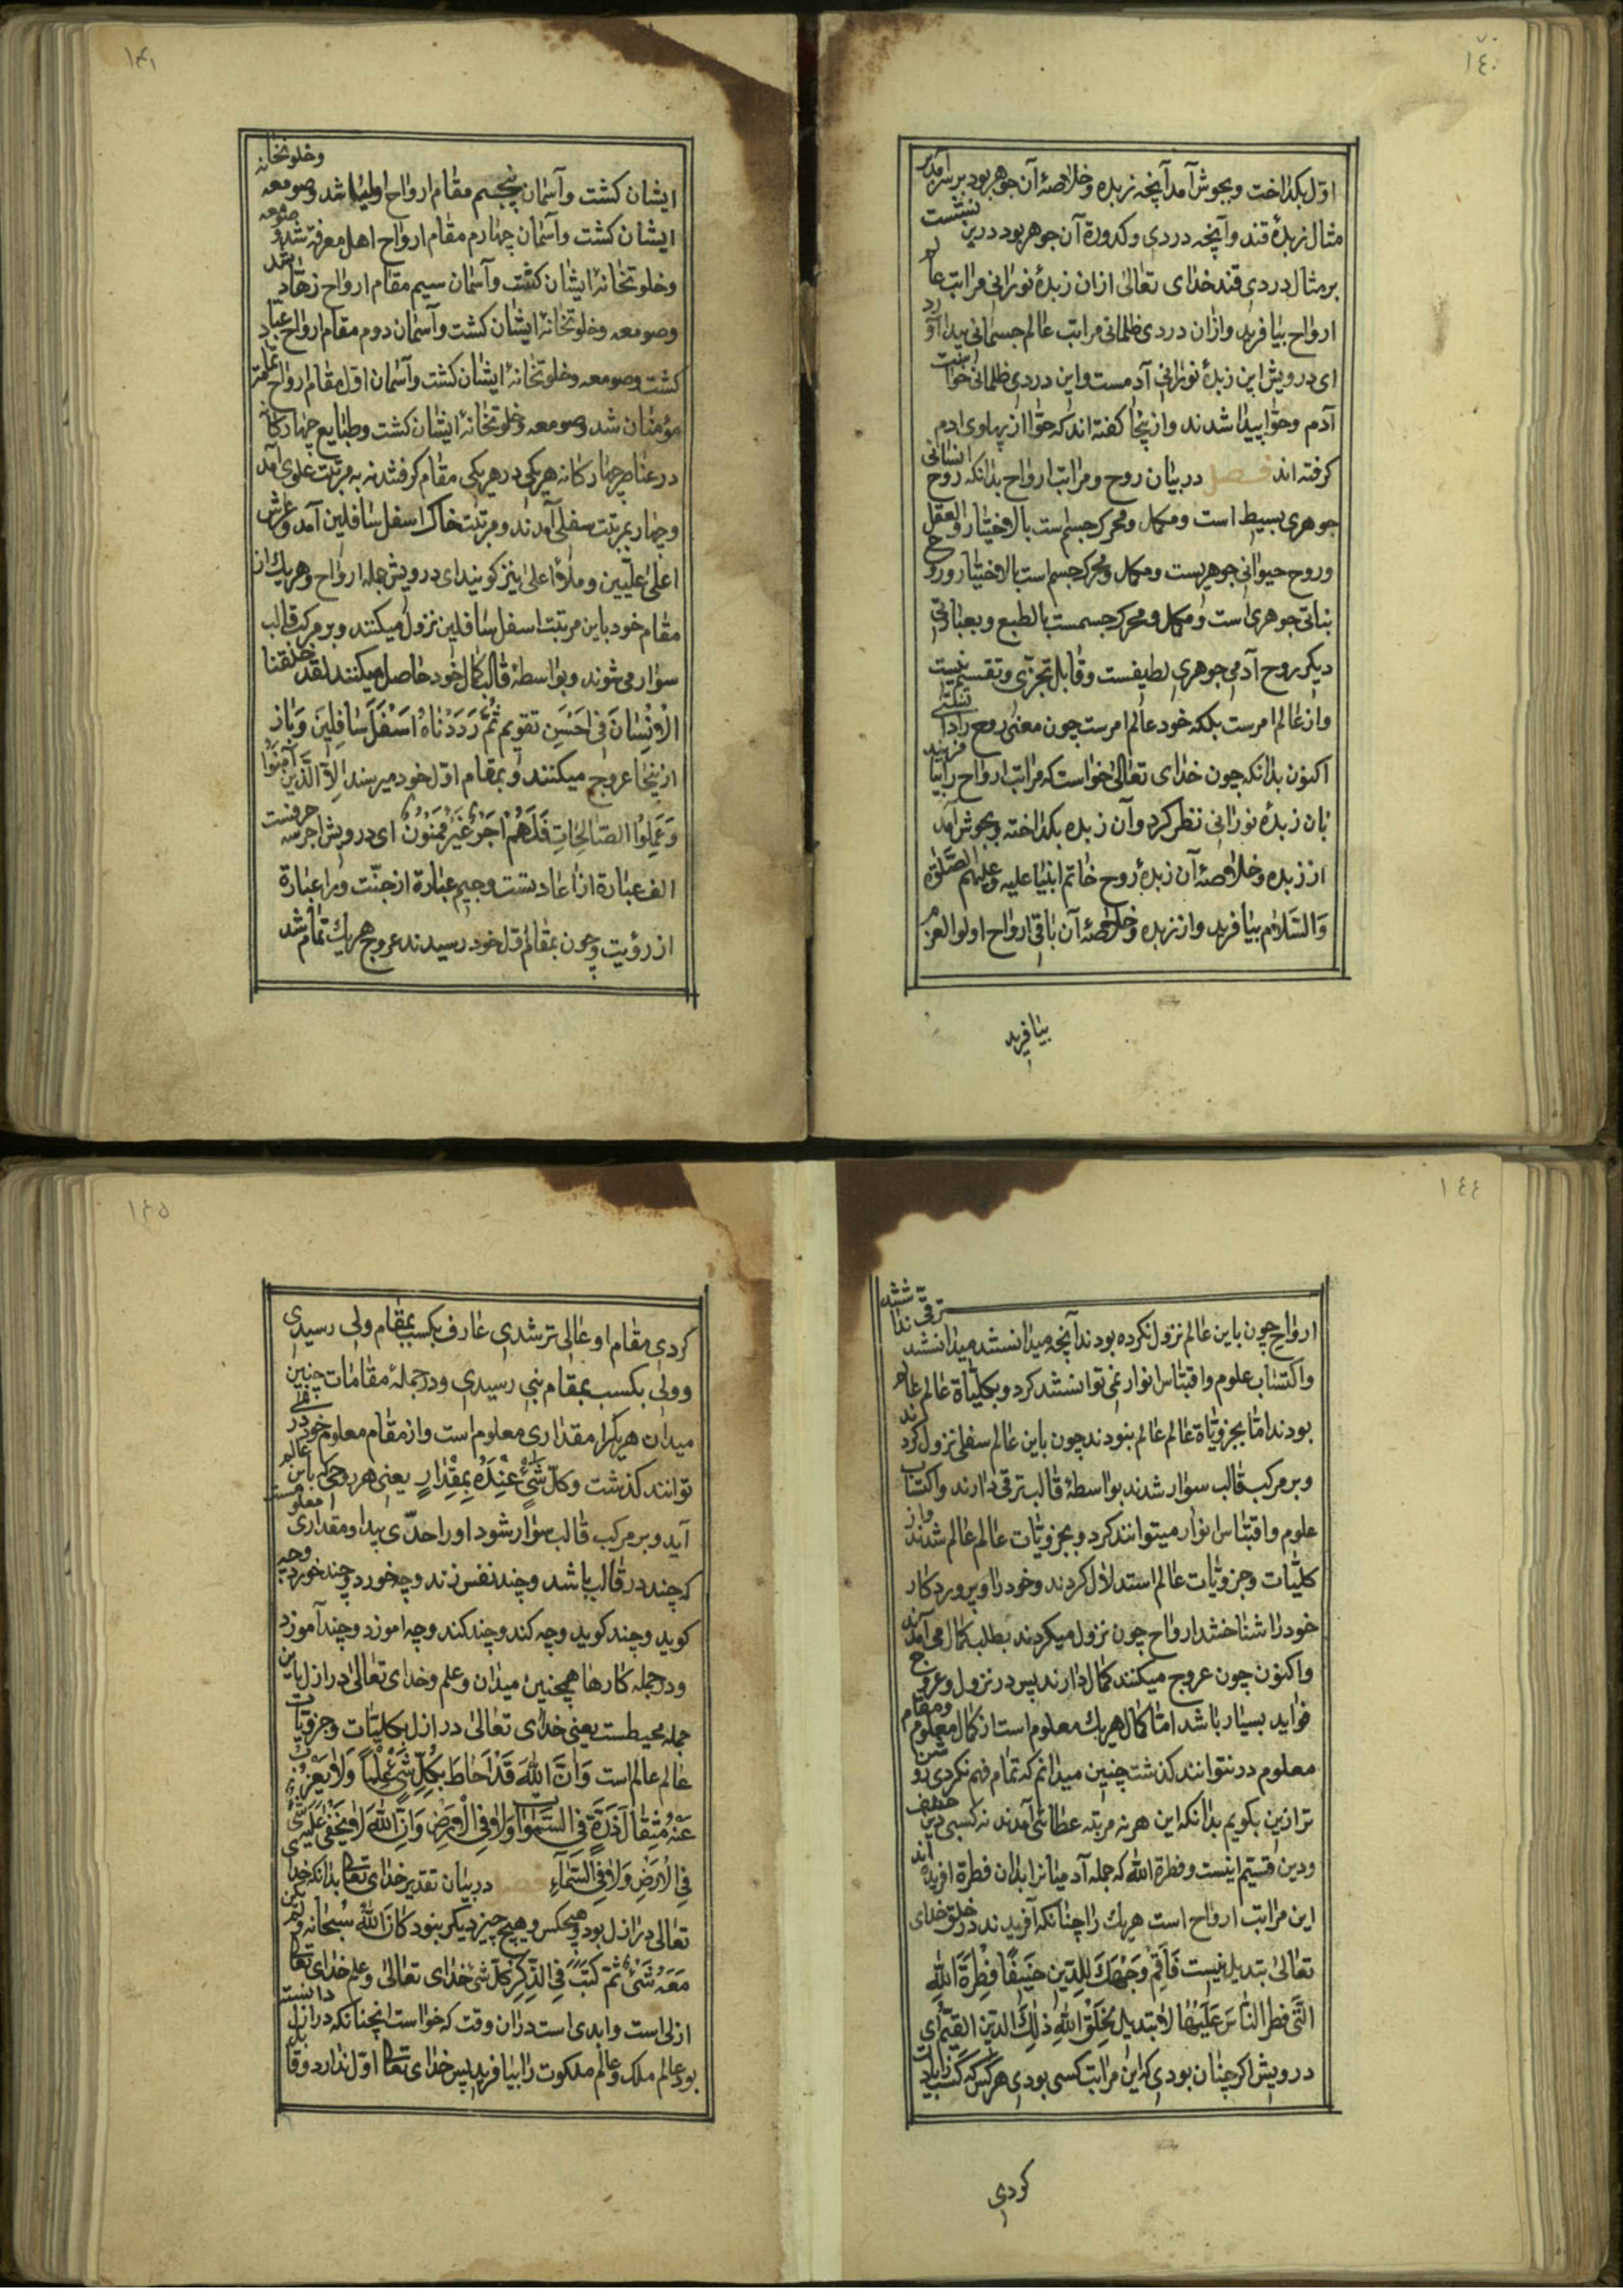 ١٤٠
اول بكداخت وبجوش آمد آنچه زبده وخلاصهٔ آن جوهر بود بر سر آمد بر
مثال زبدهٔ قند وآنچه دردی وكدورة آن جوهر بود در بن نشست
بر مثال دردی قند خدای تعالی از ان زبدهٔ نورانی مراتب عالم
ارواح بیافرید وازان دردی ظلمانی مراتب عالم جسمانی پیدا آورد
ای درویش این زبدهٔ نورانی آدمست واین دردی ظلمانی حواست
آدم وحوا پیدا شدند واز ینجا كفته اند كه حوا از پهلوی ادم
كرفته اند فصل در بیان روح ومراتب ارواح بدانكه روح انسانی
جوهری بسیط است ومكمل ومحرك جسم است بالاختیار والعقل
وروح حیوانی جوهریست ومكمل ومحرك جسم است بالاختیار وروح
نباتی جوهری است ومكمل ومحرك جسمست بالطبع وبعبارتی
دیكر روح آدمی جوهری لطیفست وقابل تجزی وتقسیم نیست
واز عالم امرست بلكه خود عالم امرست چون معنی روح را دانستی
اكنون بدانكه چون خدای تعالی خواست كه مراتب ارواح را بیافریند
بان زبدهٔ نورانی نظر كرد وآن زبده بكداخته وبجوش آمد
از زبده وخلاصهٔ آن زبدهٔ روح خاتم انبیا علیه وعلیهم الصلوة
والسلام بیافرید واز زبده وخلاصهٔ آن باقی ارواح اولو العزم
بیافرید
١۴١
ایشان كشت وآسمان پنجم مقام ارواح اولیا شد وصومعه وخلوتخانه
ایشان كشت وآسمان چهارم مقام ارواح اهل معرفة شد وصومعه
وخلوتخانهٔ ایشان كشت وآسمان سیم مقام ارواح زهاد شد
وصومعه وخلوتخانهٔ ایشان كشت وآسمان دوم مقام ارواح عباد
كشت وصومعه وخلوتخانهٔ ایشان كشت وآسمان اول مقام ارواح عامهٔ
مؤمنان شد وصومعه وخلوتخانهٔ ایشان كشت وطبایع چهاركانه
در عناصر چهاركانه هر یكی در هر یكی مقام كرفتند نه به مرتبت علوی آمد
وچهار بمرتبت سفلی آمدند ومرتبت خاك اسفل سافلین آمد وعرش
اعلی علیین وملأ اعلی نیز كویند ای درویش جمله ارواح وهر یك از
مقام خود باین مرتبت اسفل سافلین نزول میكنند وبر مركب قالب
سوار می شوند وبواسطهٔ قالب كمال خود حاصل میكنند لقد خلقنا
الْاِنْسٰانَ فِی اَحْسَنِ تقویم ثُمَّ رَدَدْنٰاهُ اَسْفَلَ سٰافِلِینَ وَباز
ازینجا عروج میكنند وبمقام اول خود میرسند اِلَّا الَّذِینَ آمَنُوا
وَعَمِلُوا الصّٰالِحٰاتِ فَلَهُمْ اَجْرٌ غَیْرُ مَمْنُونٍ ای درویش اجر سه حرفست
الف عبارة از اعادتست وجیم عبارة از جنّت ورا عبارة
از رؤیت وچون بمقام اول خود رسیدند عروج هر یك تمام شد
١٤٤
ارواح چون باین عالم نزول نكرده بودند آنچه میدانستند میدانستند ترقی نداشتند
واكتساب علوم واقتباس انوار نمی توانستند كرد وبكلیاة عالم عالم
بودند اما بجزویاة عالم عالم نبودند چون باین عالم سفلی نزول كردند
وبر مركب قالب سوار شدند بواسطهٔ قالب ترقی دارند واكتساب
علوم واقتباس انوار میتوانند كرد وبجزویات عالم عالم شدند واز
كلیات وجزویات عالم استدلال كردند وخود را وپروردكار
خود را شناختند ارواح چون نزول میكردند بطلب كمال می آمدند
واكنون چون عروج میكنند كمال دارند پس در نزول وعروج
فواید بسیار باشد اما كمال هر یك معلوم است از كمال معلوم ومقام
معلوم در نتوانند كذشت چنین میدانم كه تمام فهم نكردی روشن
تر ازین بكویم بدانكه این هر نه مرتبه عطائی آمدند نه كسبی دین حنیف
ودین قیم اینست وفطرة الله كه جمله آدمیانرا بدان فطرة افریده اند
این مراتب ارواح است هر یك را چنانكه آفریدند در خلق خدای
تعالی تبدیل نیست فَاَقِمْ وَجْهَكَ لِلدِّینِ حَنِیفًا فِطْرَةَ اللهِ
الَّتِی فَطَرَ النّٰاسَ عَلَیْهٰا لٰا تَبْدِیلَ لِخَلْقِ اللهِ ذٰلِكَ الدِّینُ الْقَیِّمُ ای
درویش اكر چنان بودی كه این مراتب كسبی بودی هر كس كه كسب زیادت
كردی
١۴۵
كردی مقام او عالی تر شدی عارف بكسب بمقام ولی رسیدی
وولی بكسب بمقام نبی رسیدی ودر جملهٔ مقامات چنین
میدان هر یكرا مقداری معلوم است واز مقام معلوم خود در نمی
توانند كذشت وَكُلُّ شَیْءٍ عِنْدَهُ بِمِقْدٰارٍ یعنی هر روحی كه باین عالم
آید وبر مركب قالب سوار شود او را حدّی پیدا ومقداری معلومست
كه چند در قالب باشد وچند نفس زند وچه خورد وچند خورد وچه
كوید وچند كوید وچه كند وچند كند وچه اموزد وچند آموزد
ودر جمله كارها همچنین میدان وعلم وخدای تعالی در ازل باین
جمله محیطست یعنی خدای تعالی در ازل بكلیات وجزویات
عالم عالم است وَاَنَّ اللهَ قَدْ اَحٰاطَ بِكُلِّ شَیْءٍ عِلْمًا وَلٰا یَعْزُبُ
عَنْهُ مِثْقٰالُ ذَرَّةٍ فِی السَّمٰوٰاتِ وَلٰا فِی الْاَرْضِ وَاَنَّ اللهَ لٰا یَخْفٰی عَلَیْهِ شَیْءٌ
فِی الْاَرْضِ وَلٰا فِی السَّمٰاءِ فصل در بیان تقدیر خدای تعالی بدانكه خدای
تعالی در ازل بود وهیچكس وهیچ چیز دیكر نبود كٰانَ اللهُ سُبْحٰانَه وَلَمْ یكن
مَعَهُ شَیْءٌ ثُمَّ كَتَبَ فِی الذِّكْرِ كُلَّ شَیْءٍ خدای تعالی وعلم خدای تعالی
ازلی است وابدی است دران وقت كه خواست انچنانكه در ازل دانسته
بود عالم ملك وعالم ملكوت را بیافرید پس خدای تعالی اوّل ندارد وقابل